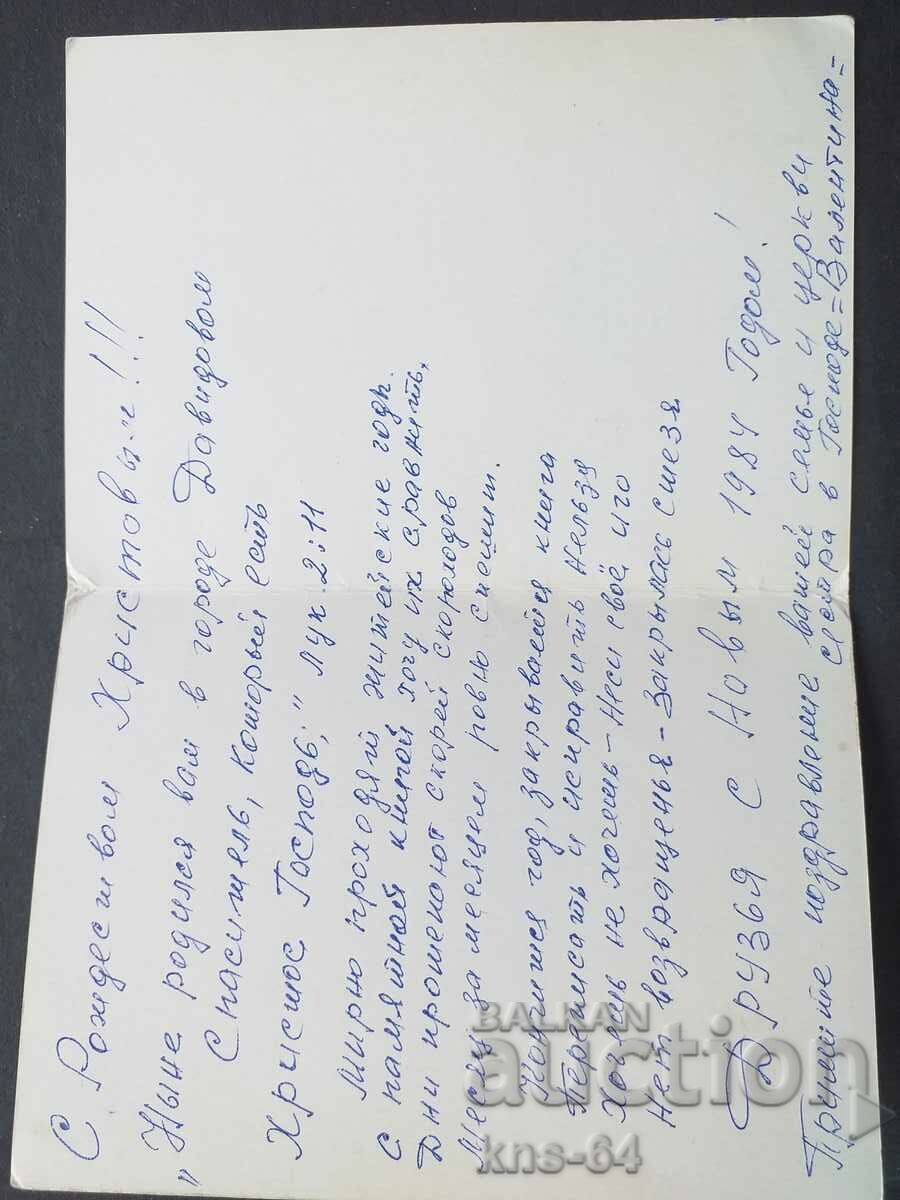 С Рождеством Христовым!!!
„Ныне родился вам в городе Давидовом
Спаситель, который есть
Христос Господь;" Лук. 2:11
Мирно проходят житейские годы.
С памятной книгой хочу их сравнить,
Дни промелькают скорей скороходов
Месяц за месяцем ровно спешит.
Кончится год, закрывается книга
Переписать и исправить нельзя
Хочешь не хочешь - неси своё иго
Нет возвращенья - закрылась стезя
Друзья с Новым 1984 Годом!
Примите поздравление вашей семье и церкви
сестра в Господе = Валентина =
BALKAN
auction
kns-64